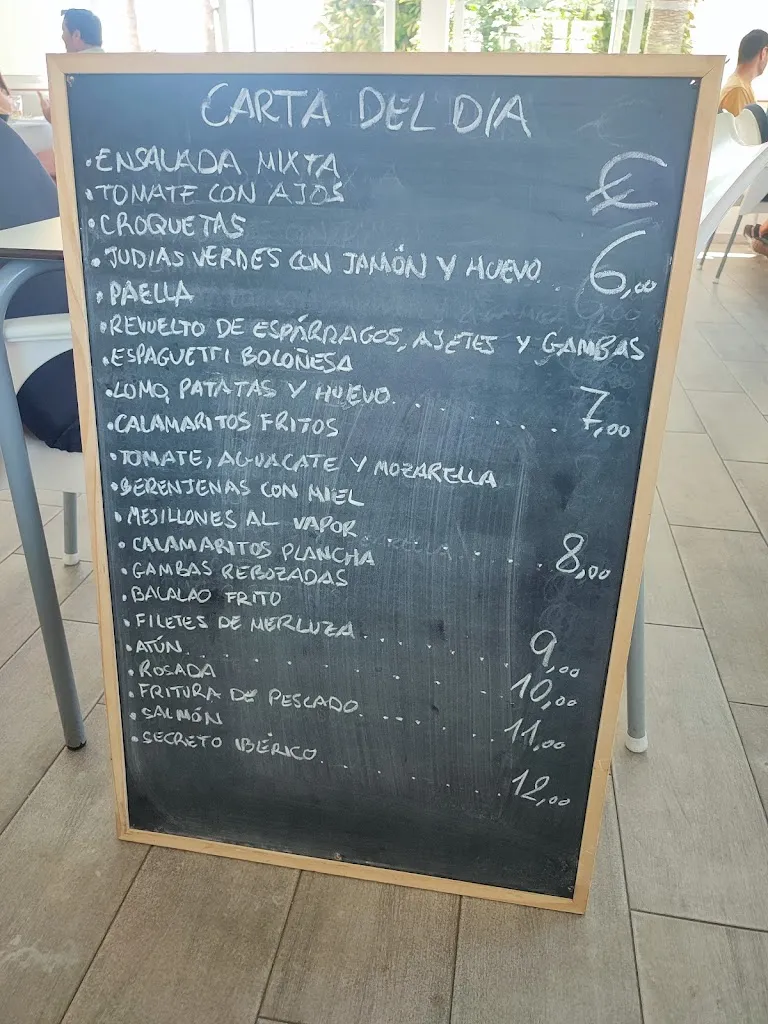 CARTA DEL DIA
€
• ENSALADA MIXTA
• TOMATE CON AJOS
• CROQUETAS
• JUDIAS VERDES CON JAMÓN Y HUEVO. . 6,00
• PAELLA
• REVUELTO DE ESPÁRRAGOS, AJETES Y GAMBAS
• ESPAGUETTI BOLOÑESA
• LOMO, PATATAS Y HUEVO. . . . . . 7,00
• CALAMARITOS FRITOS
• TOMATE, AGUACATE Y MOZARELLA
• BERENJENAS CON MIEL
• MEJILLONES AL VAPOR. . . . . . . 8,00
• CALAMARITOS PLANCHA
• GAMBAS REBOZADAS
• BACALAO FRITO
• FILETES DE MERLUZA. . . . . . 9,00
• ATÚN. . . . . . . . . 10,00
• ROSADA
• FRITURA DE PESCADO. . . . . . 11,00
• SALMÓN
• SECRETO IBÉRICO. . . . . . . 12,00